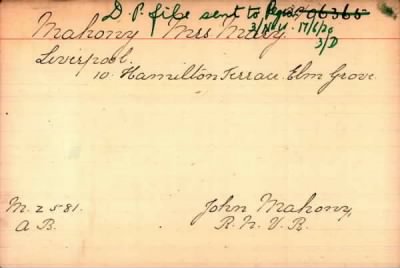 D. P. file sent to
3/N.W. 17/6/20
3/D
Mahony Mrs Mary
Liverpool.
10. Hamilton Terrace. Elm Grove
M. 2581.
A B.
John Mahony,
R. N. V. R.